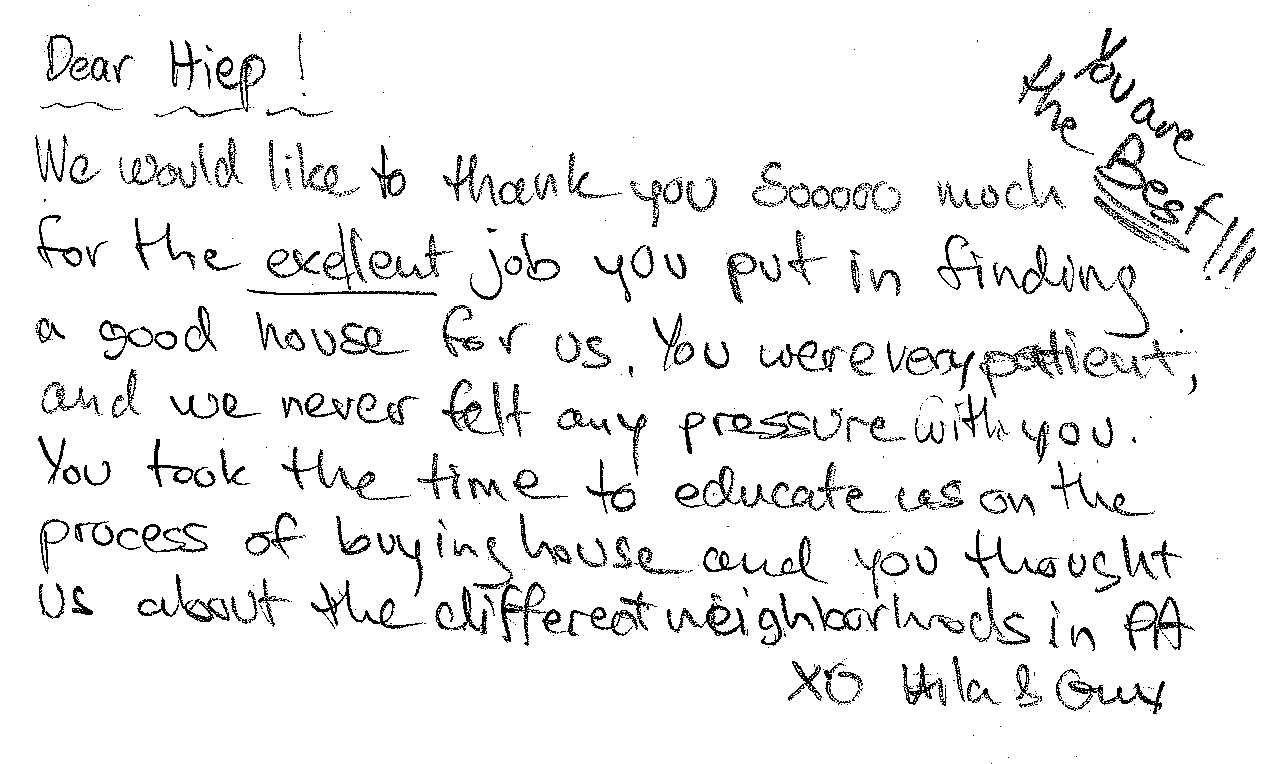 Dear Hiep!
You are
the Best!!!
We would like to thank you Sooooo much
for the exellent job you put in finding
a good house for us. You were very patient,
and we never felt any pressure with you.
You took the time to educate us on the
process of buying house and you thought
us about the different neighborhods in PA
XO Hila &